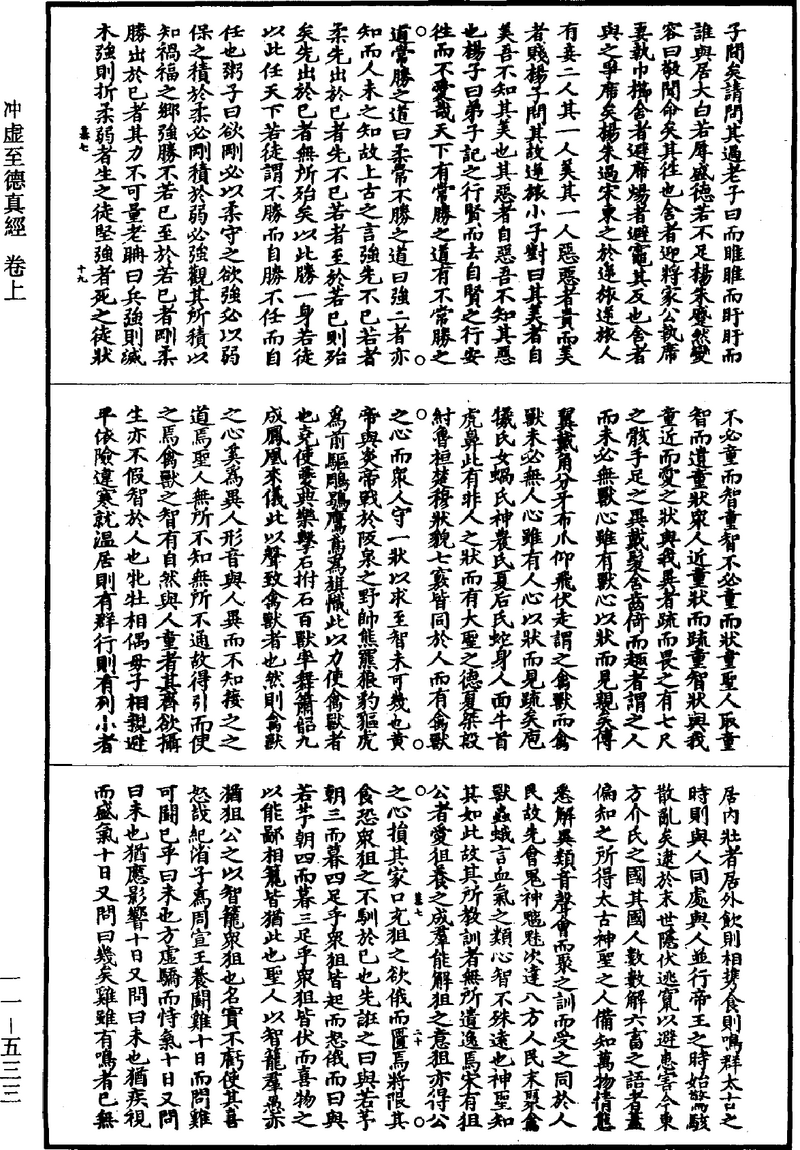 冲虛至德真經 卷上
一一—五三三
子聞矣請問其過老子曰而睢睢而盱盱而
誰與居大白若辱盛德若不足楊朱蹵然變
容曰敬聞命矣其往也舍者迎將家公執席
妻執巾櫛舍者避席煬者避竈其反也舍者
與之爭席矣楊朱過宋東之於逆旅逆旅人
有妾二人其一人美其一人惡惡者貴而美
者賤楊子問其故逆旅小子對曰其美者自
美吾不知其美也其惡者自惡吾不知其惡
也楊子曰弟子記之行賢而去自賢之行安
往而不愛哉天下有常勝之道有不常勝之
道常勝之道曰柔常不勝之道曰強二者亦
知而人未之知故上古之言強先不已若者
柔先出於已者先不已若者至於若已則殆
矣先出於已者無所殆矣以此勝一身若徒
以此任天下若徒謂不勝而自勝不任而自
任也粥子曰欲剛必以柔守之欲強必以弱
保之積於柔必剛積於弱必強觀其所積以
知禍福之鄉強勝不若已至於若已者剛柔
勝出於已者其力不可量老聃曰兵強則滅
木強則折柔弱者生之徒堅強者死之徒狀
慕七
十九
不必童而智童智不必童而狀童聖人取童
智而遺童狀眾人近童狀而疏童智狀與我
童近而愛之狀與我異者疏而畏之有七尺
之骸手足之異戴髮含齒倚而趣者謂之人
而未必無獸心雖有獸心以狀而見親矣傅
翼戴角分牙布爪仰飛伏走謂之禽獸而禽
獸未必無人心雖有人心以狀而見疏矣庖
犧氏女蝸氏神農氏夏后氏蛇身人面牛首
虎鼻此有非人之狀而有大聖之德夏桀殷
紂魯桓楚穆狀貌七竅皆同於人而有禽獸
之心而眾人守一狀以求至智未可幾也黃
帝與炎帝戰於阪泉之野帥熊羆狼豹貙虎
為前驅鵰鶡鷹鳶為旗幟此以力使禽獸者
也堯使夔典樂擊石拊石百獸率舞簫韶九
成鳳凰來儀此以聲致禽獸者也然則禽獸
之心奚為異人形音與人異而不知接之之
道焉聖人無所不知無所不通故得引而使
之焉禽獸之智有自然與人童者其齊欲攝
生亦不假智於人也牝牡相偶母子相親避
平依險違寒就溫居則有群行則有列小者
居內壯者居外飲則相攜食則鳴群太古之
時則與人同處與人並行帝王之時始驚駭
散亂矣逮於末世隱伏逃竄以避患害今東
方介氏之國其國人數數解六畜之語者蓋
偏知之所得太古神聖之人備知萬物情態
悉解異類音聲會而聚之訓而受之同於人
民故先會鬼神魑魅次達八方人民末聚禽
獸蟲蛾言血氣之類心智不殊遠也神聖知
其如此故其所教訓者無所遺逸焉宋有狙
公者愛狙養之成羣能解狙之意狙亦得公
慕七
二十
之心損其家口充狙之欲俄而匱焉將限其
食恐眾狙之不馴於已也先誑之曰與若芧
朝三而暮四足乎眾狙皆起而怒俄而曰與
若芧朝四而暮三足乎眾狙皆伏而喜物之
以能鄙相籠皆猶此也聖人以智籠羣愚亦
猶狙公之以智籠眾狙也名實不虧使其喜
怒哉紀渻子為周宣王養鬭雞十日而問雞
可鬭已乎曰未也方虛驕而恃氣十日又問
曰未也猶應影響十日又問曰未也猶疾視
而盛氣十日又問曰幾矣雞雖有鳴者已無